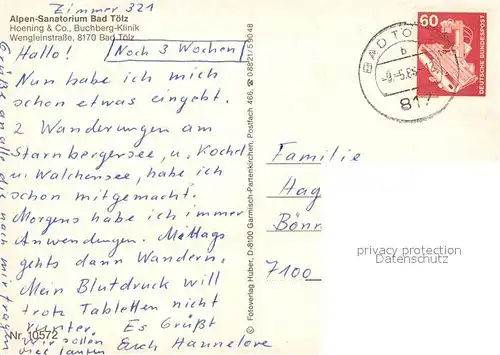 Zimmer 321
Alpen-Sanatorium Bad Tölz
Hoening & Co., Buchberg-Klinik
Wengleinstraße, 8170 Bad Tölz
Hallo! Noch 3 Wochen
Nun habe ich mich
schon etwas eingebt.
2 Wanderungen am
Starnbergersee, u. Kochel
u. Walchensee, habe ich
schon mitgemacht.
Morgens habe ich immer
Anwendungen. Mittags
gehts dann Wandern.
Mein Blutdruck will
trotz Tabletten nicht
runter. Es Grüßt
Euch Hannelore
Nr. 10572
Grüße an alle die nach mir fragen
© Fotoverlag Huber, D-8100 Garmisch-Partenkirchen, Postfach 466, ☎ 08821/59048
BAD TÖ
b
817
60
DEUTSCHE BUNDESPOST
Familie
Hag
Bönn
7100
privacy protection
Datenschutz